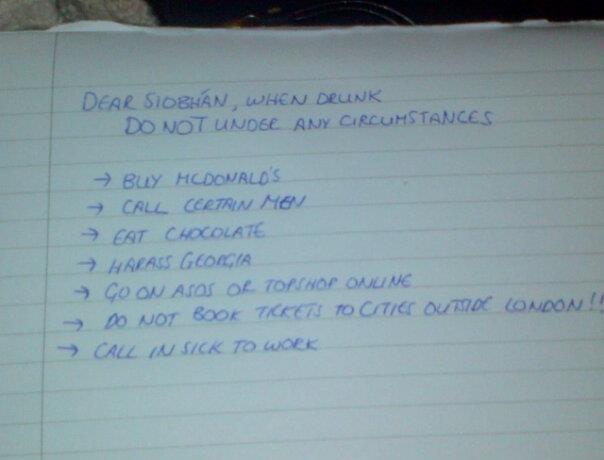 DEAR SIOBHÁN, WHEN DRUNK
DO NOT UNDER ANY CIRCUMSTANCES
→ BUY MCDONALD'S
→ CALL CERTAIN MEN
→ EAT CHOCOLATE
→ HARASS GEORGIA
→ GO ON ASOS OR TOPSHOP ONLINE
→ DO NOT BOOK TICKETS TO CITIES OUTSIDE LONDON!!
→ CALL IN SICK TO WORK